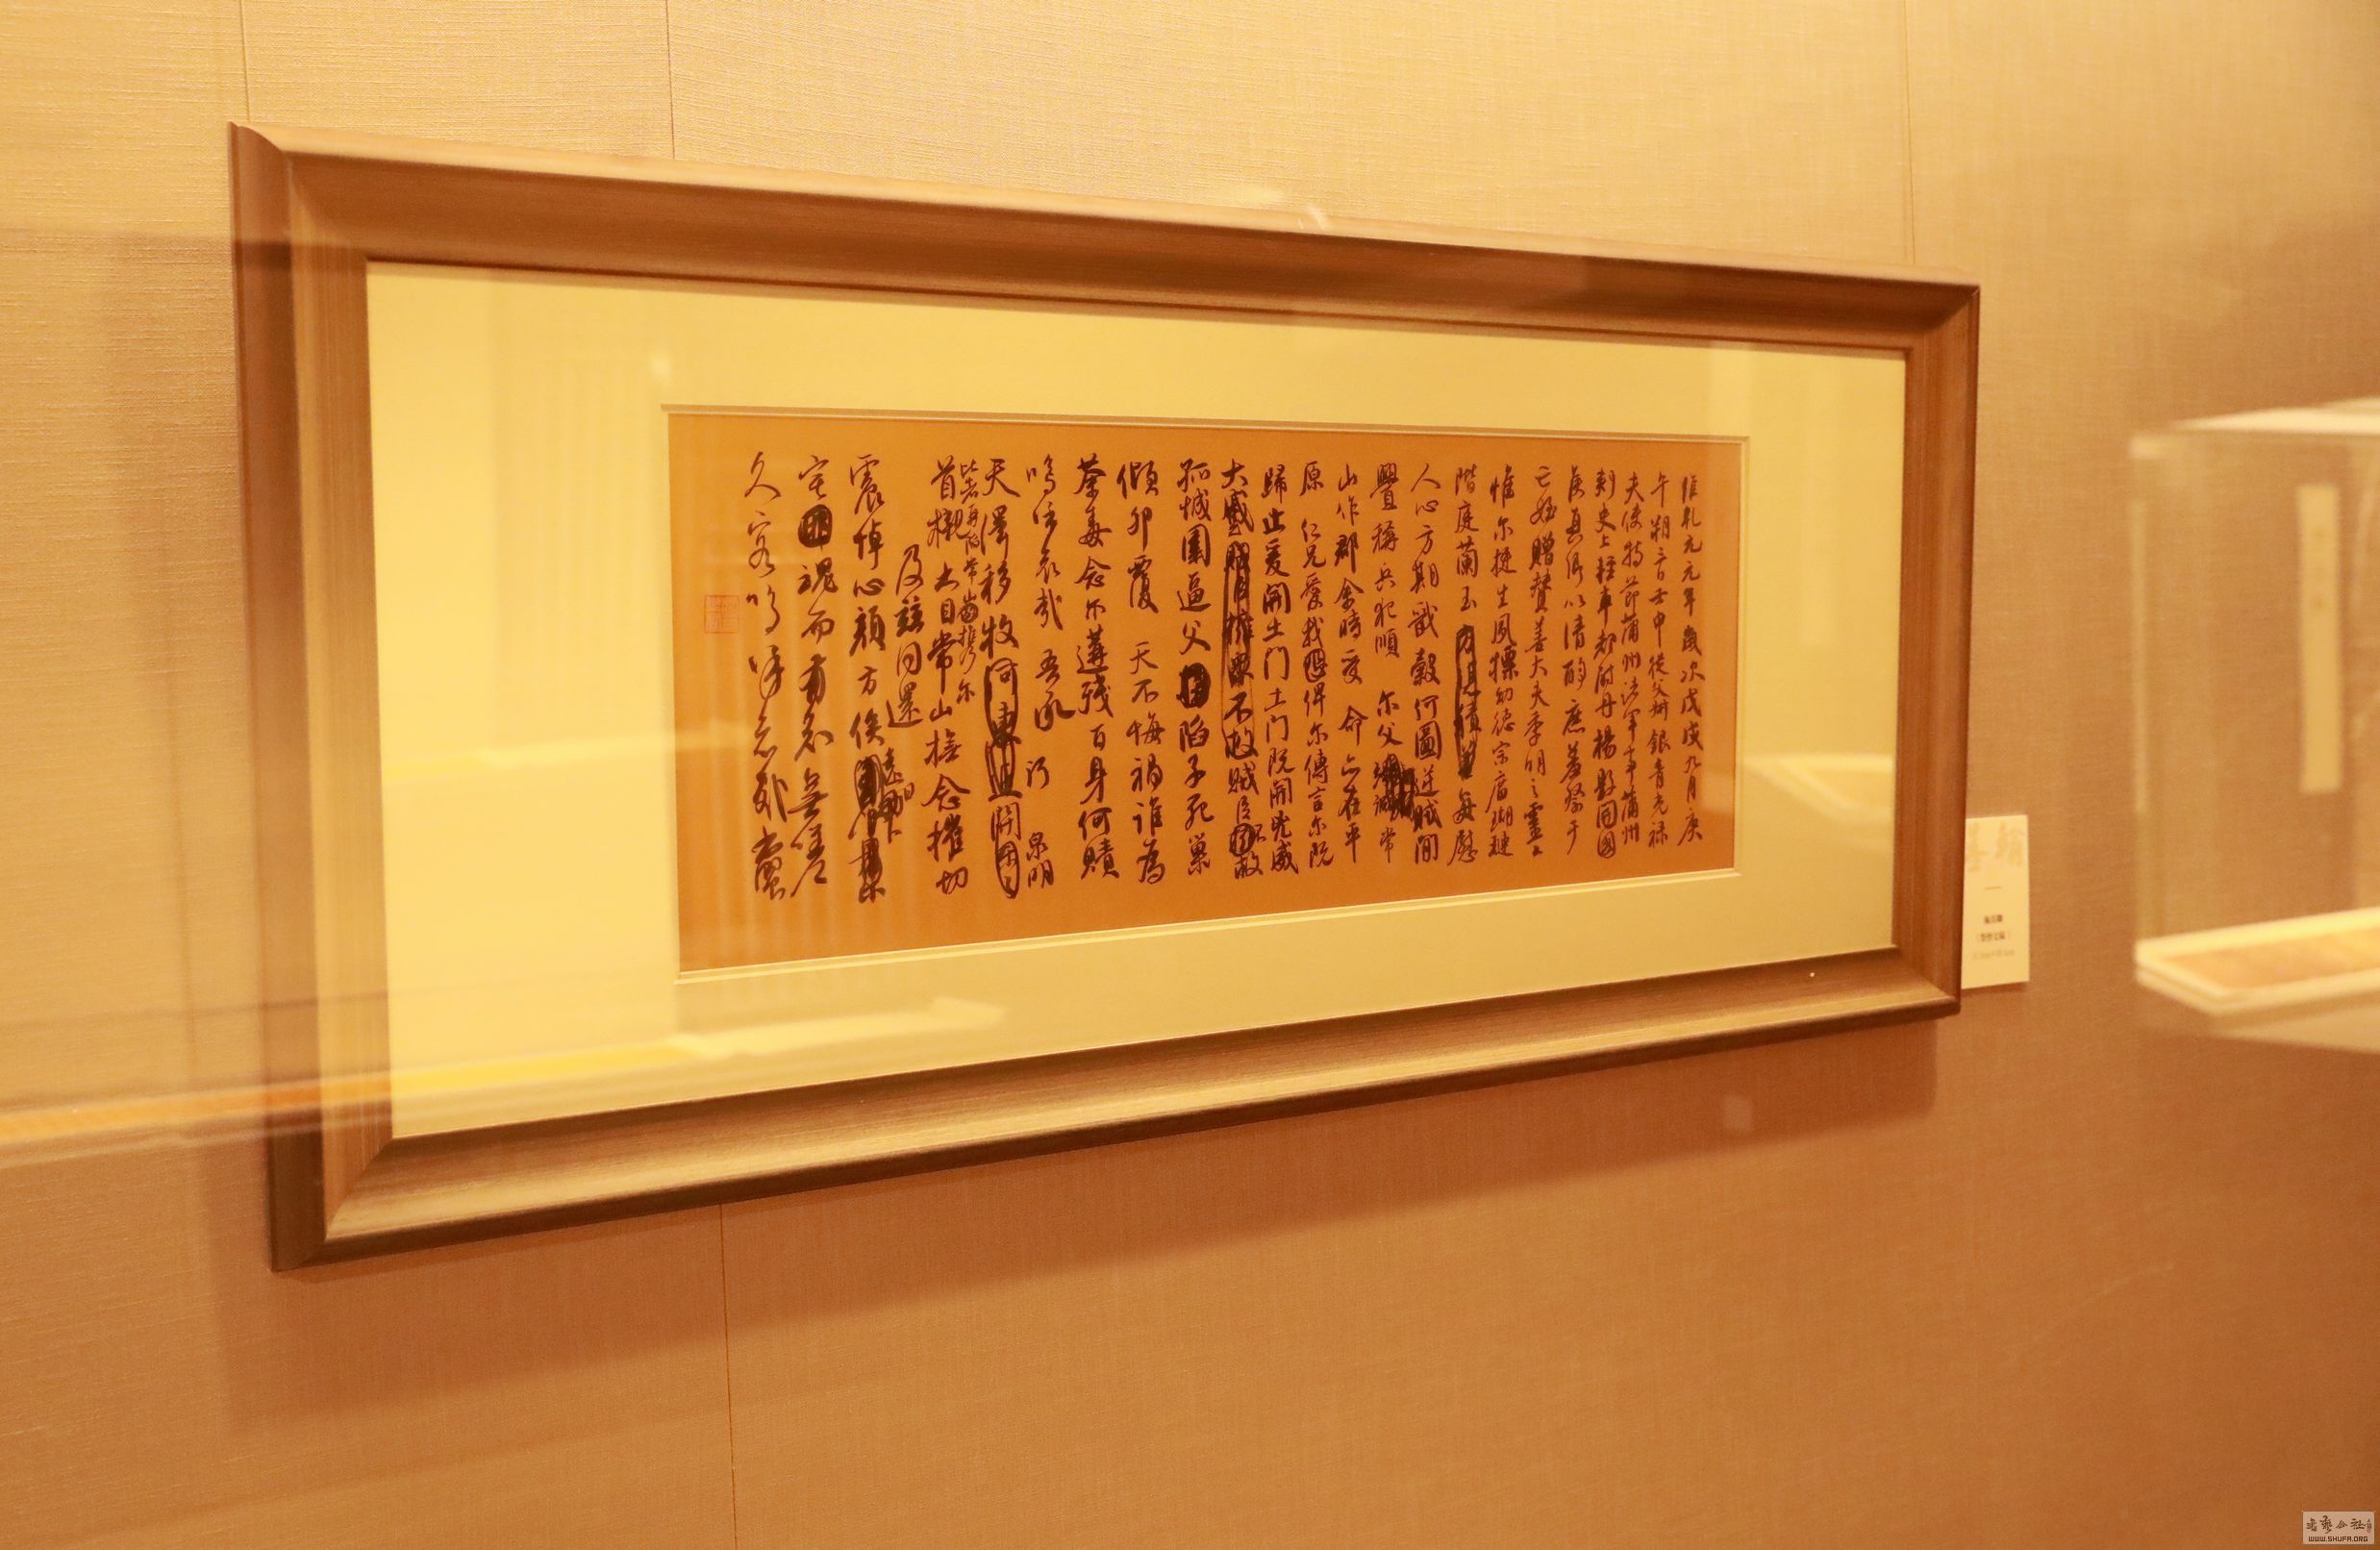 維乾元元年歲次戊戌九月庚
午朔三日壬申從父銀青光祿
夫使持節蒲州諸軍事蒲州
刺史上輕車都尉丹楊縣開國
侯真卿以清酌庶羞祭于
亡姪贈贊善大夫季明之靈
惟爾挺生夙標幼德宗廟瑚璉
階庭蘭玉每慰
人心方期戩穀何圖逆賊閒
舋稱兵犯順尔父常
山作郡余時受命亦在平
原仁兄愛我俾尔傳言尔既
歸止爰開土門土門既開兇威
大蹙賊臣不救
孤城圍逼父陷子死巢
傾卵覆天不悔禍誰為
荼毒念尔遘殘百身何贖
嗚呼哀哉吾承 泉明
天澤移牧河
比者再陷常 携尔
首櫬 常山撫念摧切
及茲同還
震悼心顏方俟 遠日
宅魂而有知無嗟
久客嗚呼哀哉尚饗
WWW.SHUFA.ORG